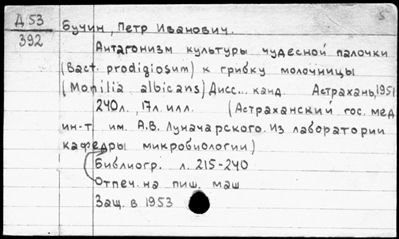 Д 53
392
5
Бучин, Петр Иванович.
Антагонизм культуры чудесной палочки
(Bact. prodigiosum) к грибку молочницы
(Monilia albicans) Дисс... канд. Астрахань, 1951
240л., 17л. илл. (Астраханский гос. мед
ин-т им. А.В. Луначарского. Из лаборатории
кафедры микробиологии)
Библиогр. л. 215-240
Отпеч. на пиш. маш
Защ. в 1953